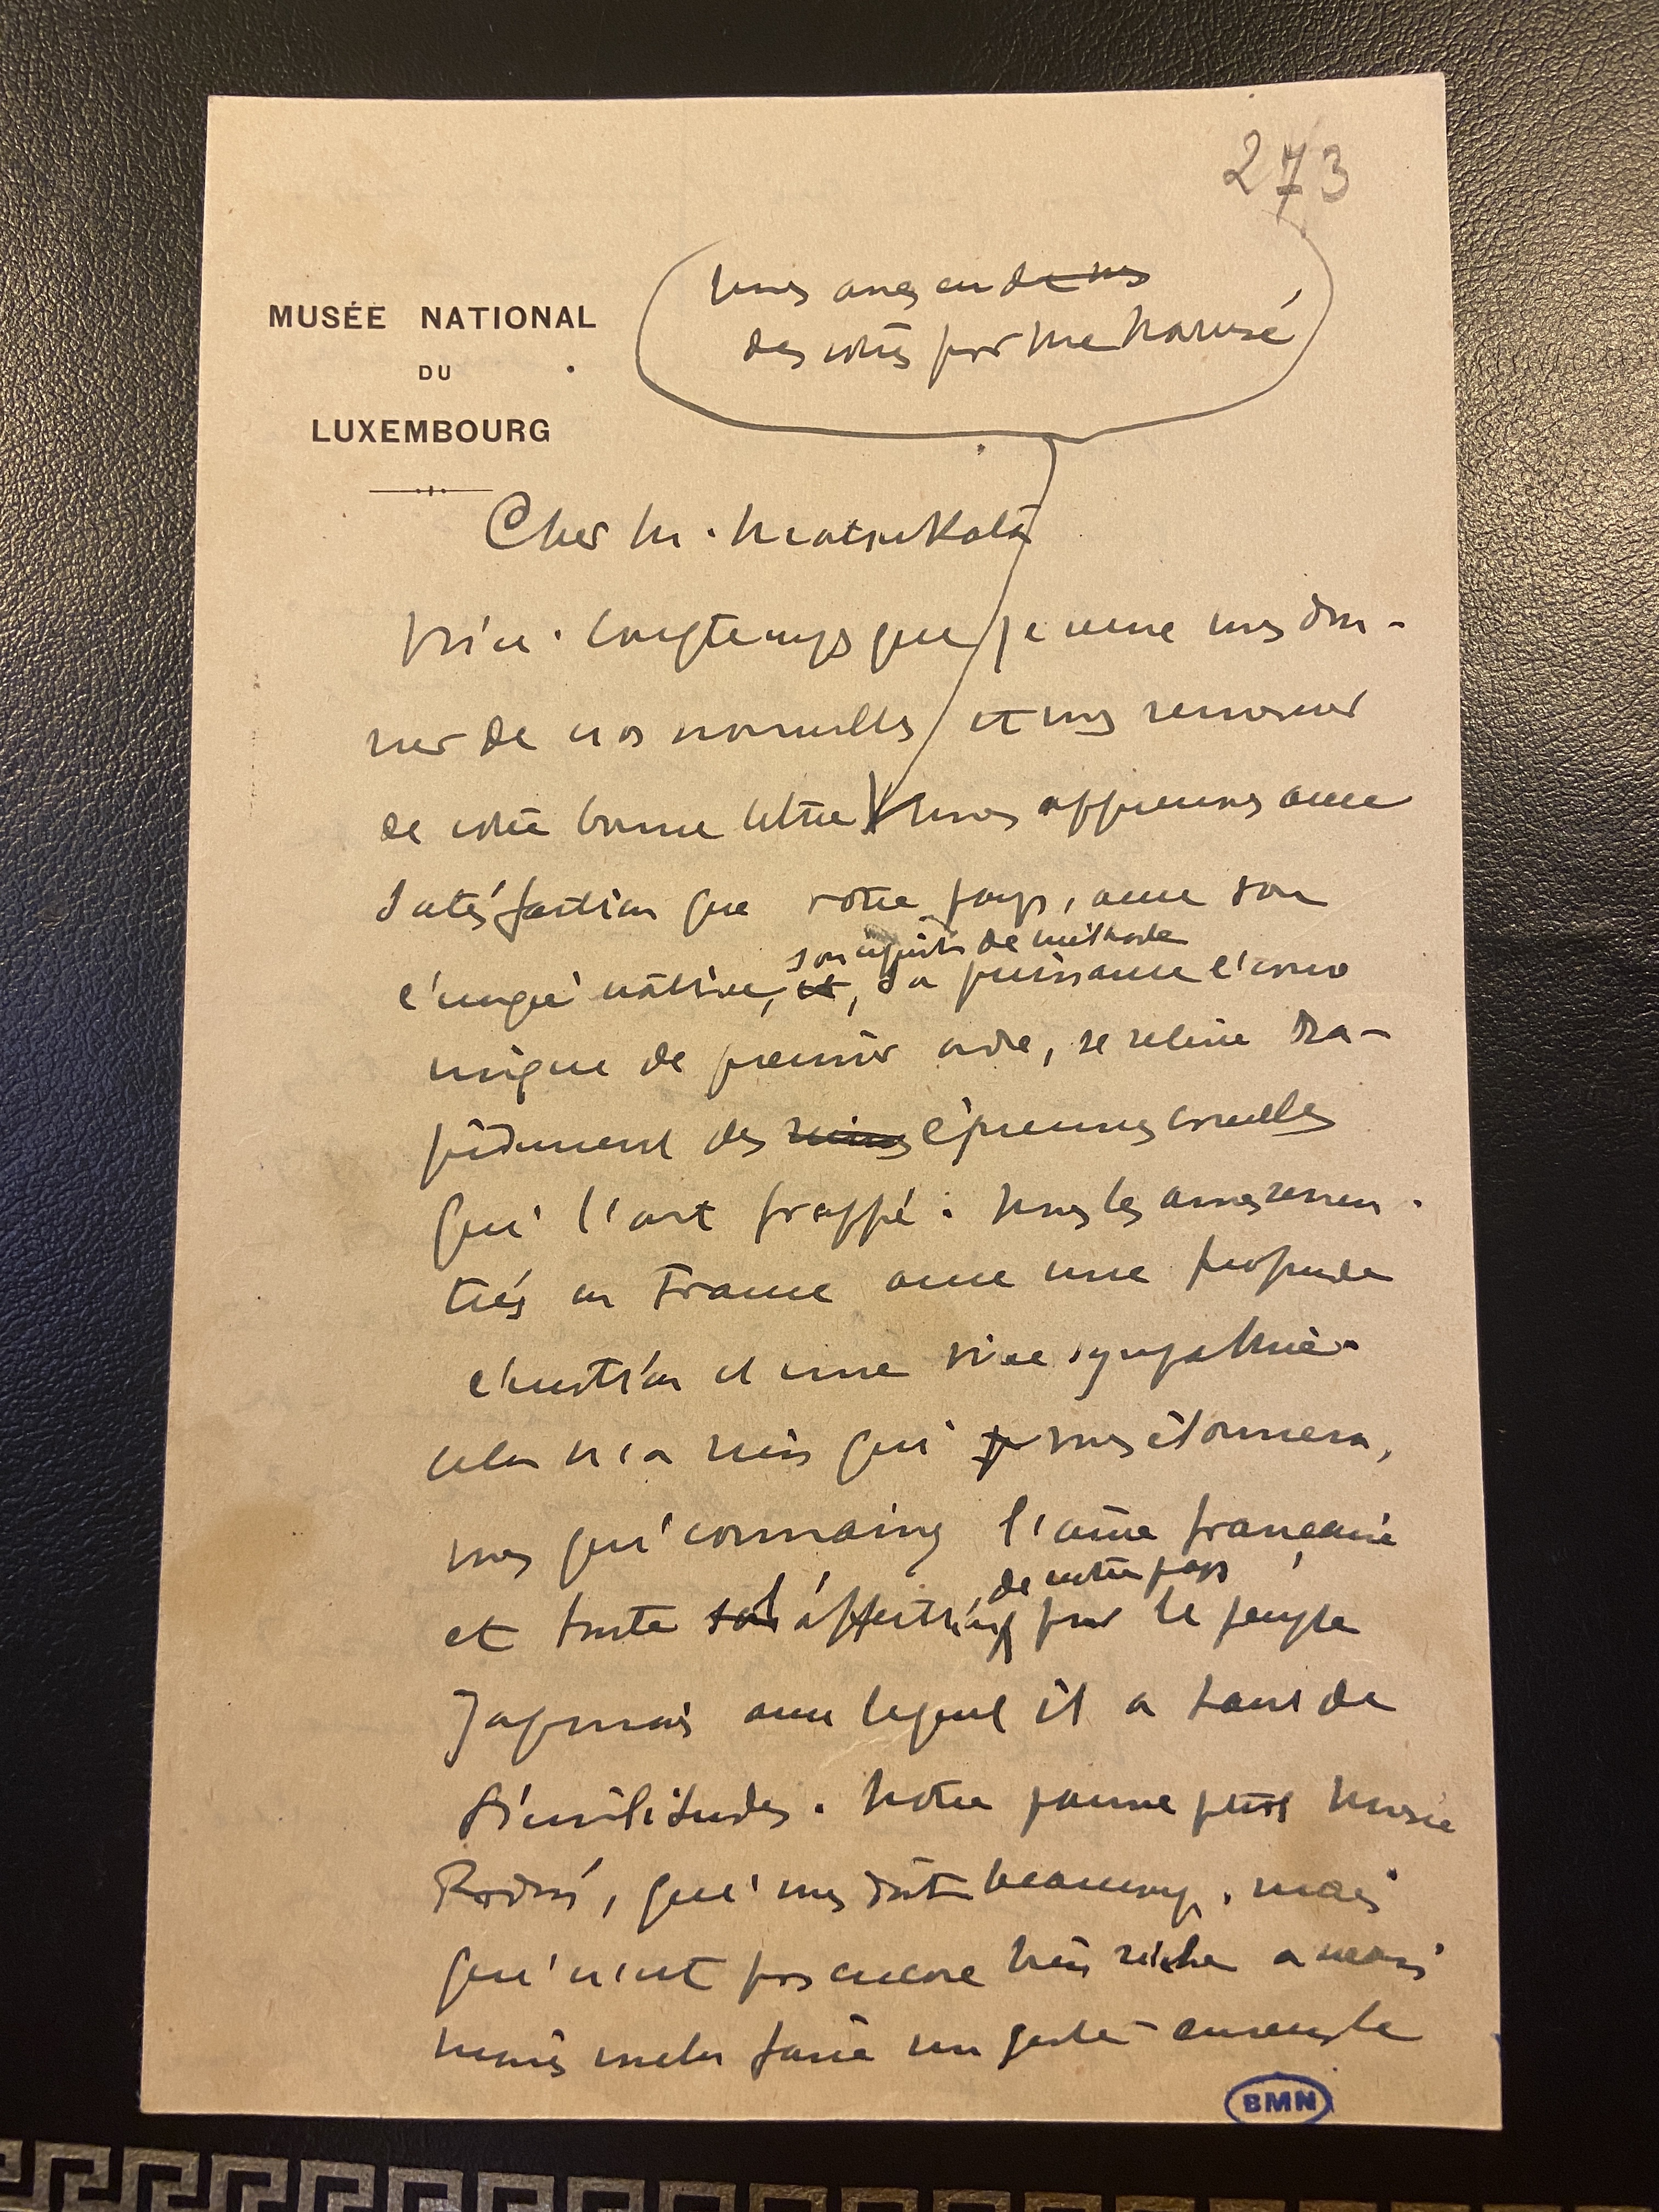 273
MUSÉE NATIONAL
DU
LUXEMBOURG
nous avons eu de vos
des votres par Mr
Cher M. Matsukata
Voici longtemps que je veux vous don-
ner de nos nouvelles et vous remercier
de votre bonne lettre Nous apprenons avec
satisfaction que votre pays, avec son
son esprit de méthode
énergie native, et, sa puissance écono
mique de premier ordre, se relève ra-
pidement des ruines épreuves cruelles
qui l'ont frappé. Nous les avons ressen-
ties en France avec une profonde
émotion et une vive sympathie.
cela n'a rien qui vous étonnera,
vous qui connaissez l'âme française
de notre pays
et toute son l'affection pour le peuple
Japonais avec lequel il a tant de
similitudes. Notre jeune petit Musée
Rodin, qui vous doit beaucoup, mais
qui n'est pas encore très riche a
voulu faire un geste
BMN